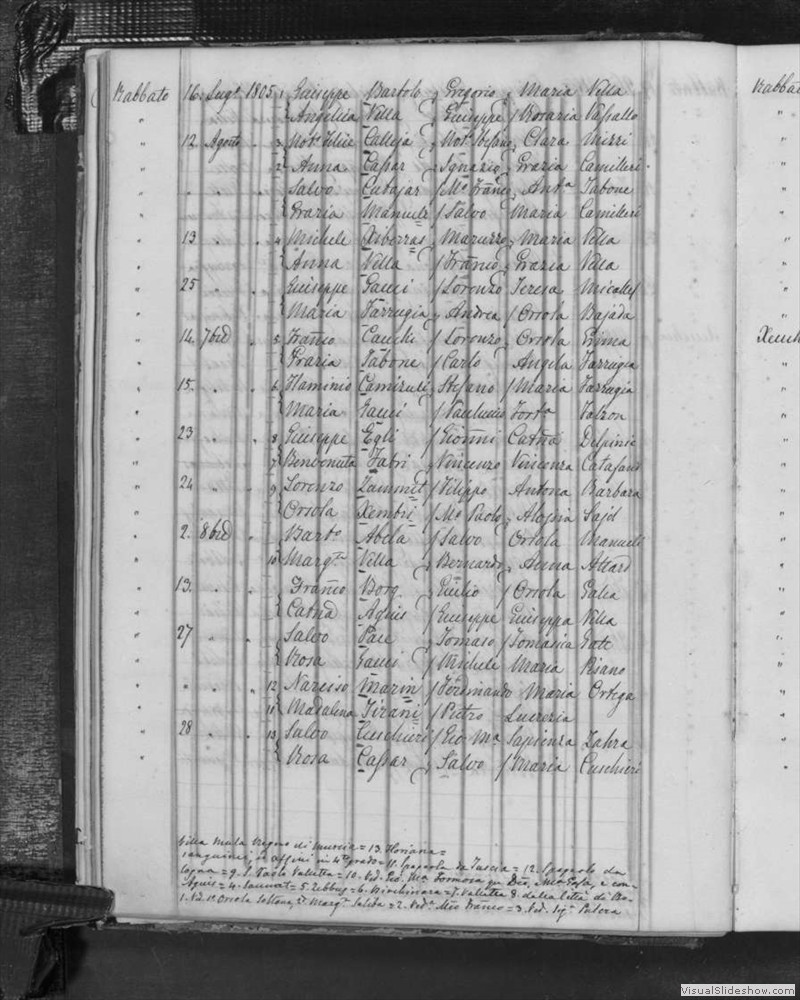 Rabbato 16. Lug.o 1805 1 Giuseppe Bartolo Gregorio Maria Villa
" Angelica Villa Giuseppe Rosaria Vassallo
" 12 Agosto 3 Not.r Felice Calleja Not.r Stefano Clara Mizzi
" 2 Anna Cassar Ignazio Grazia Camilleri
" Salvo Cutajar M.o Franc.o Ant.a Tabone
" Grazia Manueli Salvo Maria Camilleri
" 13 4 Michele Xiberras Maruzzo Maria Villa
" Anna Villa Franc.o Grazia Villa
" 25 Giuseppe Gauci Lorenzo Teresa Micallef
" Maria Farrugia Andrea Orsola Bajada
" 14. 7bre 5 Franc.o Cauchi Lorenzo Orsola Grima
" Grazia Tabone Carlo Angela Farrugia
" 15. 6 Flaminio Stefano Maria Farrugia
" Maria Gauci Paoluccio Fort.a Falzon
" 23 8 Giuseppe Egli Gio:nni Cat.na
" 7 Benvenuta Fabri Vincenzo Vincenza
" 24 9 Lorenzo Zammit Filippo Antona Barbara
" Orsola Xembri M.o Paolo Aloysia Sajd
" 2. 8bre Bart.o Abela Salvo Orsola Manueli
" 10 Marg.ta Villa Bernardo Anna Attard
" 13. Franc.o Borg Giulio Orsola Galea
" Cat.na Agius Giuseppe Giuseppa Villa
" 27 Salvo Pace Tomaso Tomasia
" Rosa Gauci Michele Maria Pisano
" 12 Narciso Marin Ferdinando Maria Ortega
" 11 Madalena Tirani Pietro Lucrezia
" 28 13 Salvo Cuschieri Gio M.a Sapienza Zahra
" Rosa Cassar Salvo Maria Cuschieri
Villa Mula Regno di Murcia = 13. Floriana =
sanguinei, ed affini in 4to grado = 11. Spagnola da Tuscia = 12. Spagnolo da
logna = 9. S. Paolo Valletta = 10. Ved. Gio. M.a Formosa
Agius = 4. = 5. Zebbug = 6. Birchircara = 7. Valletta 8. dalla Città di Bo-
1. Ved. Orsola Sultana, 2o Marg.ta = 2. Ved.a Franc.o = 3. Ved.
Rabbato
VisualSlideshow.com